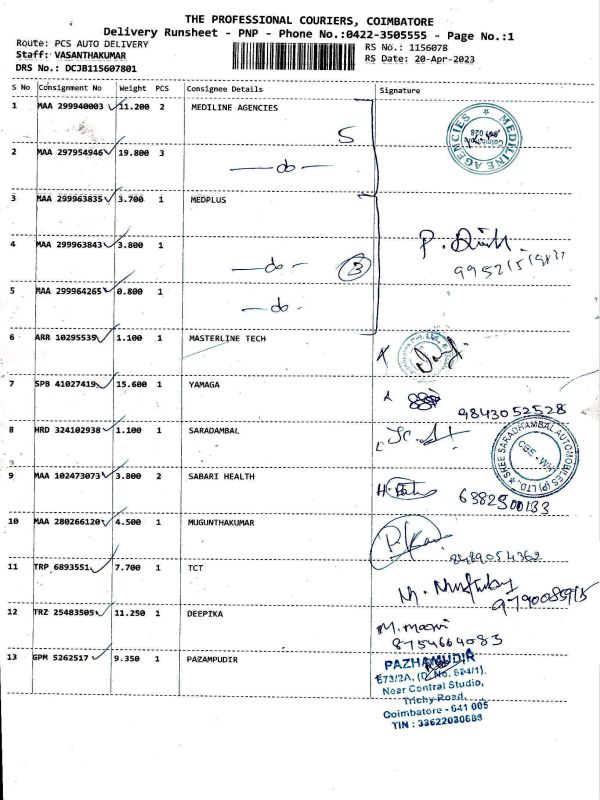 THE PROFESSIONAL COURIERS, COIMBATORE
Delivery Runsheet - PNP - Phone No.:0422-3505555 - Page No.:1
Route: PCS AUTO DELIVERY
RS No.: 1156078
Staff: VASANTHAKUMAR
RS Date: 20-Apr-2023
DRS No.: DCJB115607801
S No Consignment No Weight PCS Consignee Details Signature
1 MAA 299940003 11.200 2 MEDILINE AGENCIES
MEDELINE AGENCIES
5
2 MAA 297954946 19.800 3
do
3 MAA 299963835 3.700 1 MEDPLUS
4 MAA 299963843 3.800 1
do 3
5 MAA 299964265 0.800 1
do
6 ARR 10295535 1.100 1 MASTERLINE TECH
7 SPB 41027419 15.600 1 YAMAGA
9843052528
8 HRD 324102938 1.100 1 SARADAMBAL
SREE SARADHAMBAL AUTOMOBILES (P) LTD.
9 MAA 102473073 3.800 2 SABARI HEALTH
10 MAA 280266120 4.500 1 MUGUNTHAKUMAR
8489054362
11 TRP 6893551 7.700 1 TCT
12 TRZ 25483505 11.250 1 DEEPIKA
8754664083
13 GPM 5262517 9.350 1 PAZAMPUDIR
PAZHAMUDIR
Near Central Studio,
Trichy Road,
Coimbatore - 641 005
TIN : 33622030688